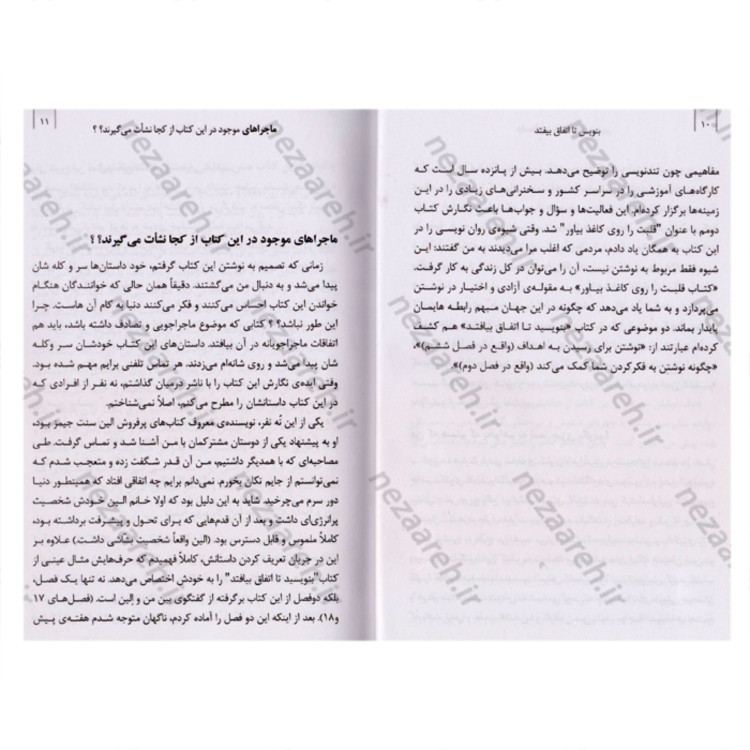 ۱۰
بنویس تا اتفاق بیفتد
مفاهیمی چون تندنویسی را توضیح می‌دهد. بیش از پانزده سال است که
کارگاه‌های آموزشی را در سراسر کشور و سخنرانی‌های زیادی را در این
زمینه‌ها برگزار کرده‌ام. این فعالیت‌ها و سؤال و جواب‌ها باعث نگارش کتاب
دومم با عنوان "قلبت را روی کاغذ بیاور" شد. وقتی شیوه‌ی روان نویسی را در
این کتاب به همگان یاد دادم، مردمی که اغلب مرا می‌دیدند به من گفتند: این
شیوه فقط مربوط به نوشتن نیست، آن را می‌توان در کل زندگی به کار گرفت.
«کتاب قلبت را روی کاغذ بیاور» به مقوله‌ی آزادی و اختیار در نوشتن
می‌پردازد و به شما یاد می‌دهد که چگونه در این جهان مبهم رابطه هایسان
پایدار بماند. دو موضوعی که در کتاب «بنویسید تا اتفاق بیافتد» هم کشف
کرده‌ام عبارتند از: «نوشتن برای رسیدن به اهداف (واقع در فصل ششم)»،
«چگونه نوشتن به فکرکردن شما کمک می‌کند (واقع در فصل دوم)».
ماجراهای موجود در این کتاب از کجا نشأت می‌گیرند؟ ؟
۱۱
ماجراهای موجود در این کتاب از کجا نشأت می‌گیرند؟ ؟
زمانی که تصمیم به نوشتن این کتاب گرفتم، خود داستان‌ها سر و کله شان
پیدا می‌شد و به دنبال من می‌گشتند. دقیقاً همان حالی که خوانندگان هنگام
خواندن این کتاب احساس می‌کنند و فکر می‌کنند دنیا به کام آن هاست. چرا
این طور نباشد؟ ؟ کتابی که موضوع ماجراجویی و تصادف داشته باشد، باید هم
اتفاقات ماجراجویانه در آن بیافتد. داستان‌های این کتاب خودشان سر وکله
شان پیدا می‌شد و روی شانه‌ام می‌زدند. هر تماس تلفنی برایم مهم شده بود.
وقتی ایده‌ی نگارش این کتاب را با ناشر درمیان گذاشتم، نه نفر از افرادی که
در این کتاب داستانشان را مطرح می‌کنم، اصلاً نمی‌شناختم.
یکی از این نُه نفر، نویسنده‌ی معروف کتاب‌های پرفروش الین سنت جیمز بود.
او به پیشنهاد یکی از دوستان مشترکمان با من آشنا شد و تماس گرفت. طی
مصاحبه‌ای که با همدیگر داشتیم، من آن قدر شگفت زده و متعجب شدم که
نمی‌توانستم از جایم تکان بخورم. نمی‌دانم برایم چه اتفاقی افتاد که همینطور دنیا
دور سرم می‌چرخید. شاید به این دلیل بود که اولا خانم الین خودش شخصیت
پرانرژی‌ای داشت و بعد از آن قدم‌هایی که برای تحول و پیشرفت برداشته بود،
کاملاً ملموس و قابل دسترس بود. (الین واقعاً شخصیت بشاشی داشت) علاوه بر
این در جریان تعریف کردن داستانش، کاملاً فهمیدم که حرف‌هایش مثال عینی از
کتاب"بنویسید تا اتفاق بیافتد" را به خودش اختصاص می‌دهد. نه تنها یک فصل،
بلکه دوفصل از این کتاب برگرفته از گفتگوی بین من و اِلین است. (فصل‌های ۱۷
و۱۸). بعد از اینکه این دو فصل را آماده کردم، ناگهان متوجه شدم هفته‌ی پیش
nezaareh.ir
nezaareh.ir
nezaareh.ir
nezaareh.ir
nezaareh.ir
nezaareh.ir
nezaareh.ir
nezaareh.ir
nezaareh.ir